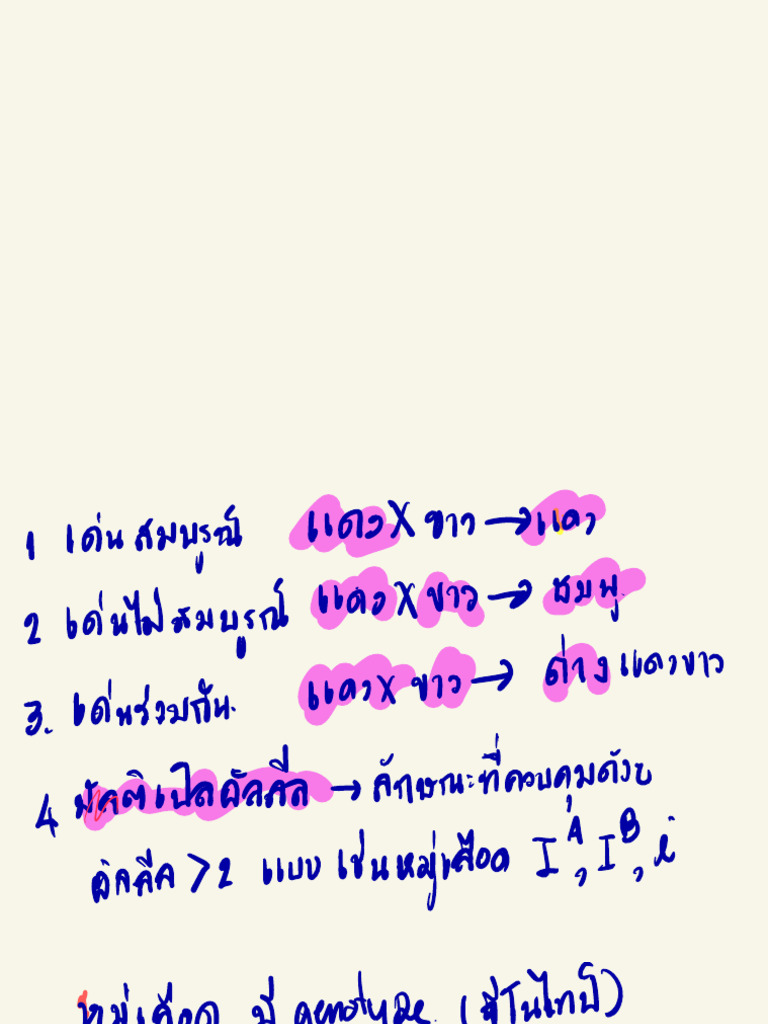 1 เด่นสมบูรณ์ แดง X ขาว → แดง
2 เด่นไม่สมบูรณ์ แดง X ขาว → ชมพู
3. เด่นร่วมกัน. แดง X ขาว → ด่างแดงขาว
4 มัลติเปิลอัลลีล → ลักษณะที่ควบคุมด้วย
อัลลีล > 2 แบบ เช่นหมู่เลือด Iᴬ, Iᴮ, i
หมู่เลือด มี genotype (จีโนไทป์)